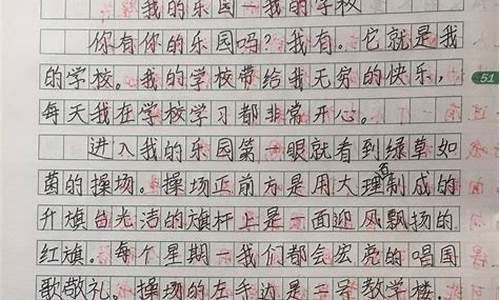 我的乐园—我的学校
你有你的乐园吗?我有。它就是我
的学校。我的学校带给我无穷的快乐,
每天我在学校学习都非常开心。
进入我的乐园第一眼就看到绿草如
茵的操场:操场正前方是用大理石制成的
升旗台光洁的旗杆上是一面迎风飘扬的
红旗。每个星期一我们都会宏亮的唱国
歌敬礼。操场的左手边是二号教学楼,
51